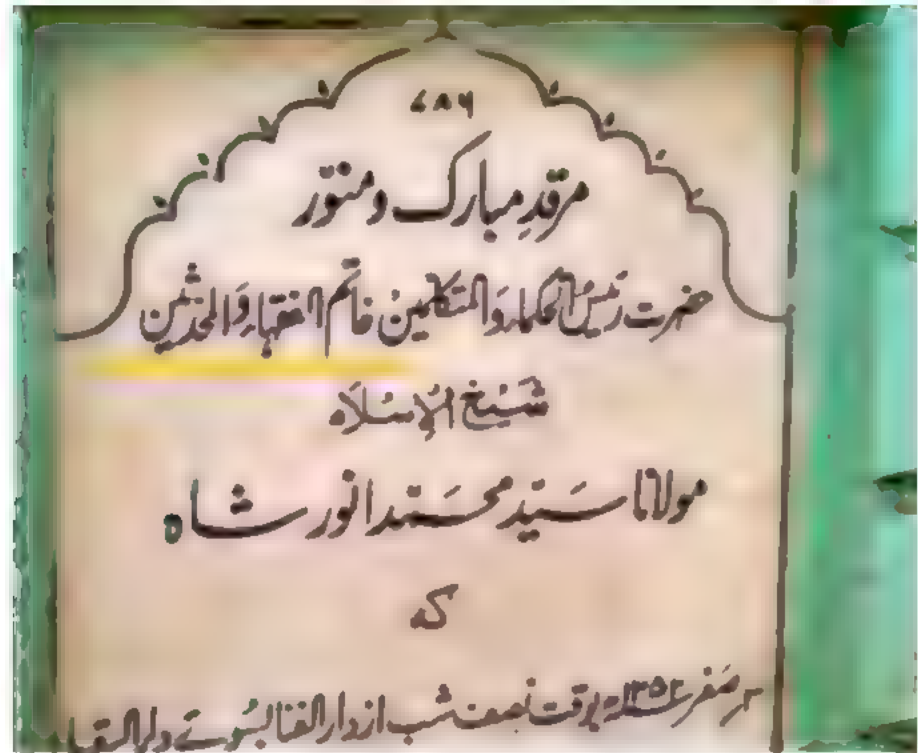 ۷۸۶
مرقدِ مبارک و منوّر
حضرت رئیسُ الحکماء وَالمتکلمینُ خاتم الفقہاء وَالمحدثین
شَیْخُ الْاِسْلَام
مولانا سَیّد محمّد انور شاہ
کہ
صَفر ۱۳۵۲ھ بوقت نصف شب از دار الفنا بسُوئے دار البقا